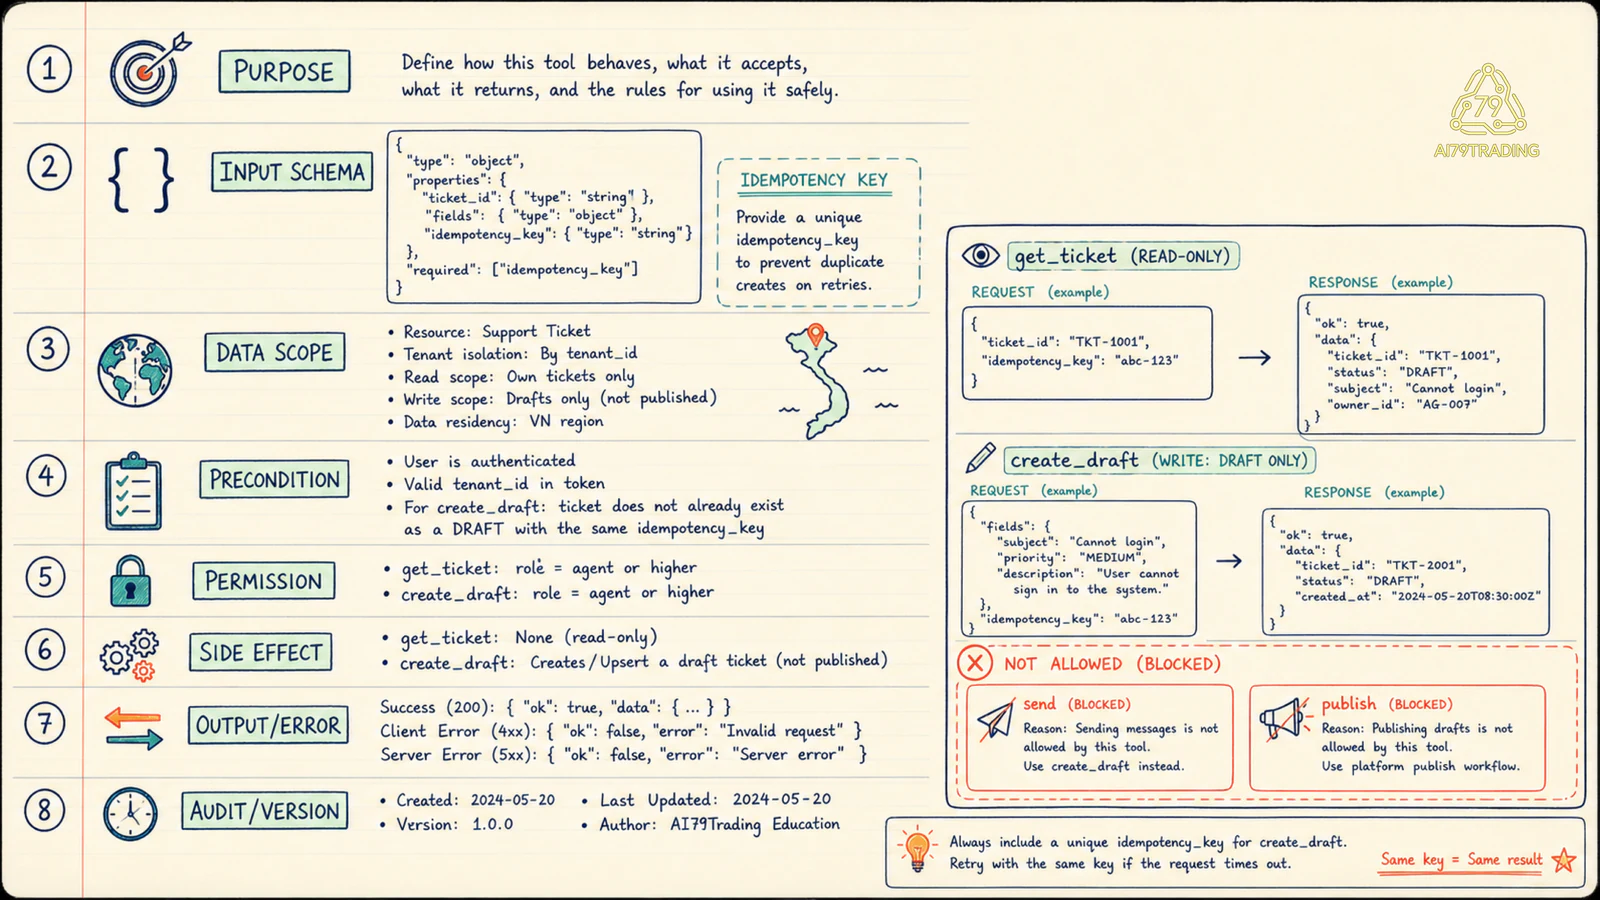 1
PURPOSE
Define how this tool behaves, what it accepts,
what it returns, and the rules for using it safely.
2
{ }
INPUT SCHEMA
{
"type": "object",
"properties": {
"ticket_id": { "type": "string" },
"fields": { "type": "object" },
"idempotency_key": { "type": "string" }
},
"required": ["idempotency_key"]
}
IDEMPOTENCY KEY
Provide a unique
idempotency_key
to prevent duplicate
creates on retries.
3
DATA SCOPE
• Resource: Support Ticket
• Tenant isolation: By tenant_id
• Read scope: Own tickets only
• Write scope: Drafts only (not published)
• Data residency: VN region
4
PRECONDITION
• User is authenticated
• Valid tenant_id in token
• For create_draft: ticket does not already exist
as a DRAFT with the same idempotency_key
5
PERMISSION
• get_ticket: role = agent or higher
• create_draft: role = agent or higher
6
SIDE EFFECT
• get_ticket: None (read-only)
• create_draft: Creates/Upsert a draft ticket (not published)
7
OUTPUT/ERROR
Success (200): { "ok": true, "data": { ... } }
Client Error (4xx): { "ok": false, "error": "Invalid request" }
Server Error (5xx): { "ok": false, "error": "Server error" }
8
AUDIT/VERSION
• Created: 2024-05-20
• Last Updated: 2024-05-20
• Version: 1.0.0
• Author: AI79Trading Education
79
AI79TRADING
get_ticket (READ-ONLY)
REQUEST (example)
{
"ticket_id": "TKT-1001",
"idempotency_key": "abc-123"
}
RESPONSE (example)
{
"ok": true,
"data": {
"ticket_id": "TKT-1001",
"status": "DRAFT",
"subject": "Cannot login",
"owner_id": "AG-007"
}
}
create_draft (WRITE: DRAFT ONLY)
REQUEST (example)
{
"fields": {
"subject": "Cannot login",
"priority": "MEDIUM",
"description": "User cannot
sign in to the system."
},
"idempotency_key": "abc-123"
}
RESPONSE (example)
{
"ok": true,
"data": {
"ticket_id": "TKT-2001",
"status": "DRAFT",
"created_at": "2024-05-20T08:30:00Z"
}
}
NOT ALLOWED (BLOCKED)
send (BLOCKED)
Reason: Sending messages is not
allowed by this tool.
Use create_draft instead.
publish (BLOCKED)
Reason: Publishing drafts is not
allowed by this tool.
Use platform publish workflow.
Always include a unique idempotency_key for create_draft.
Retry with the same key if the request times out.
Same key = Same result